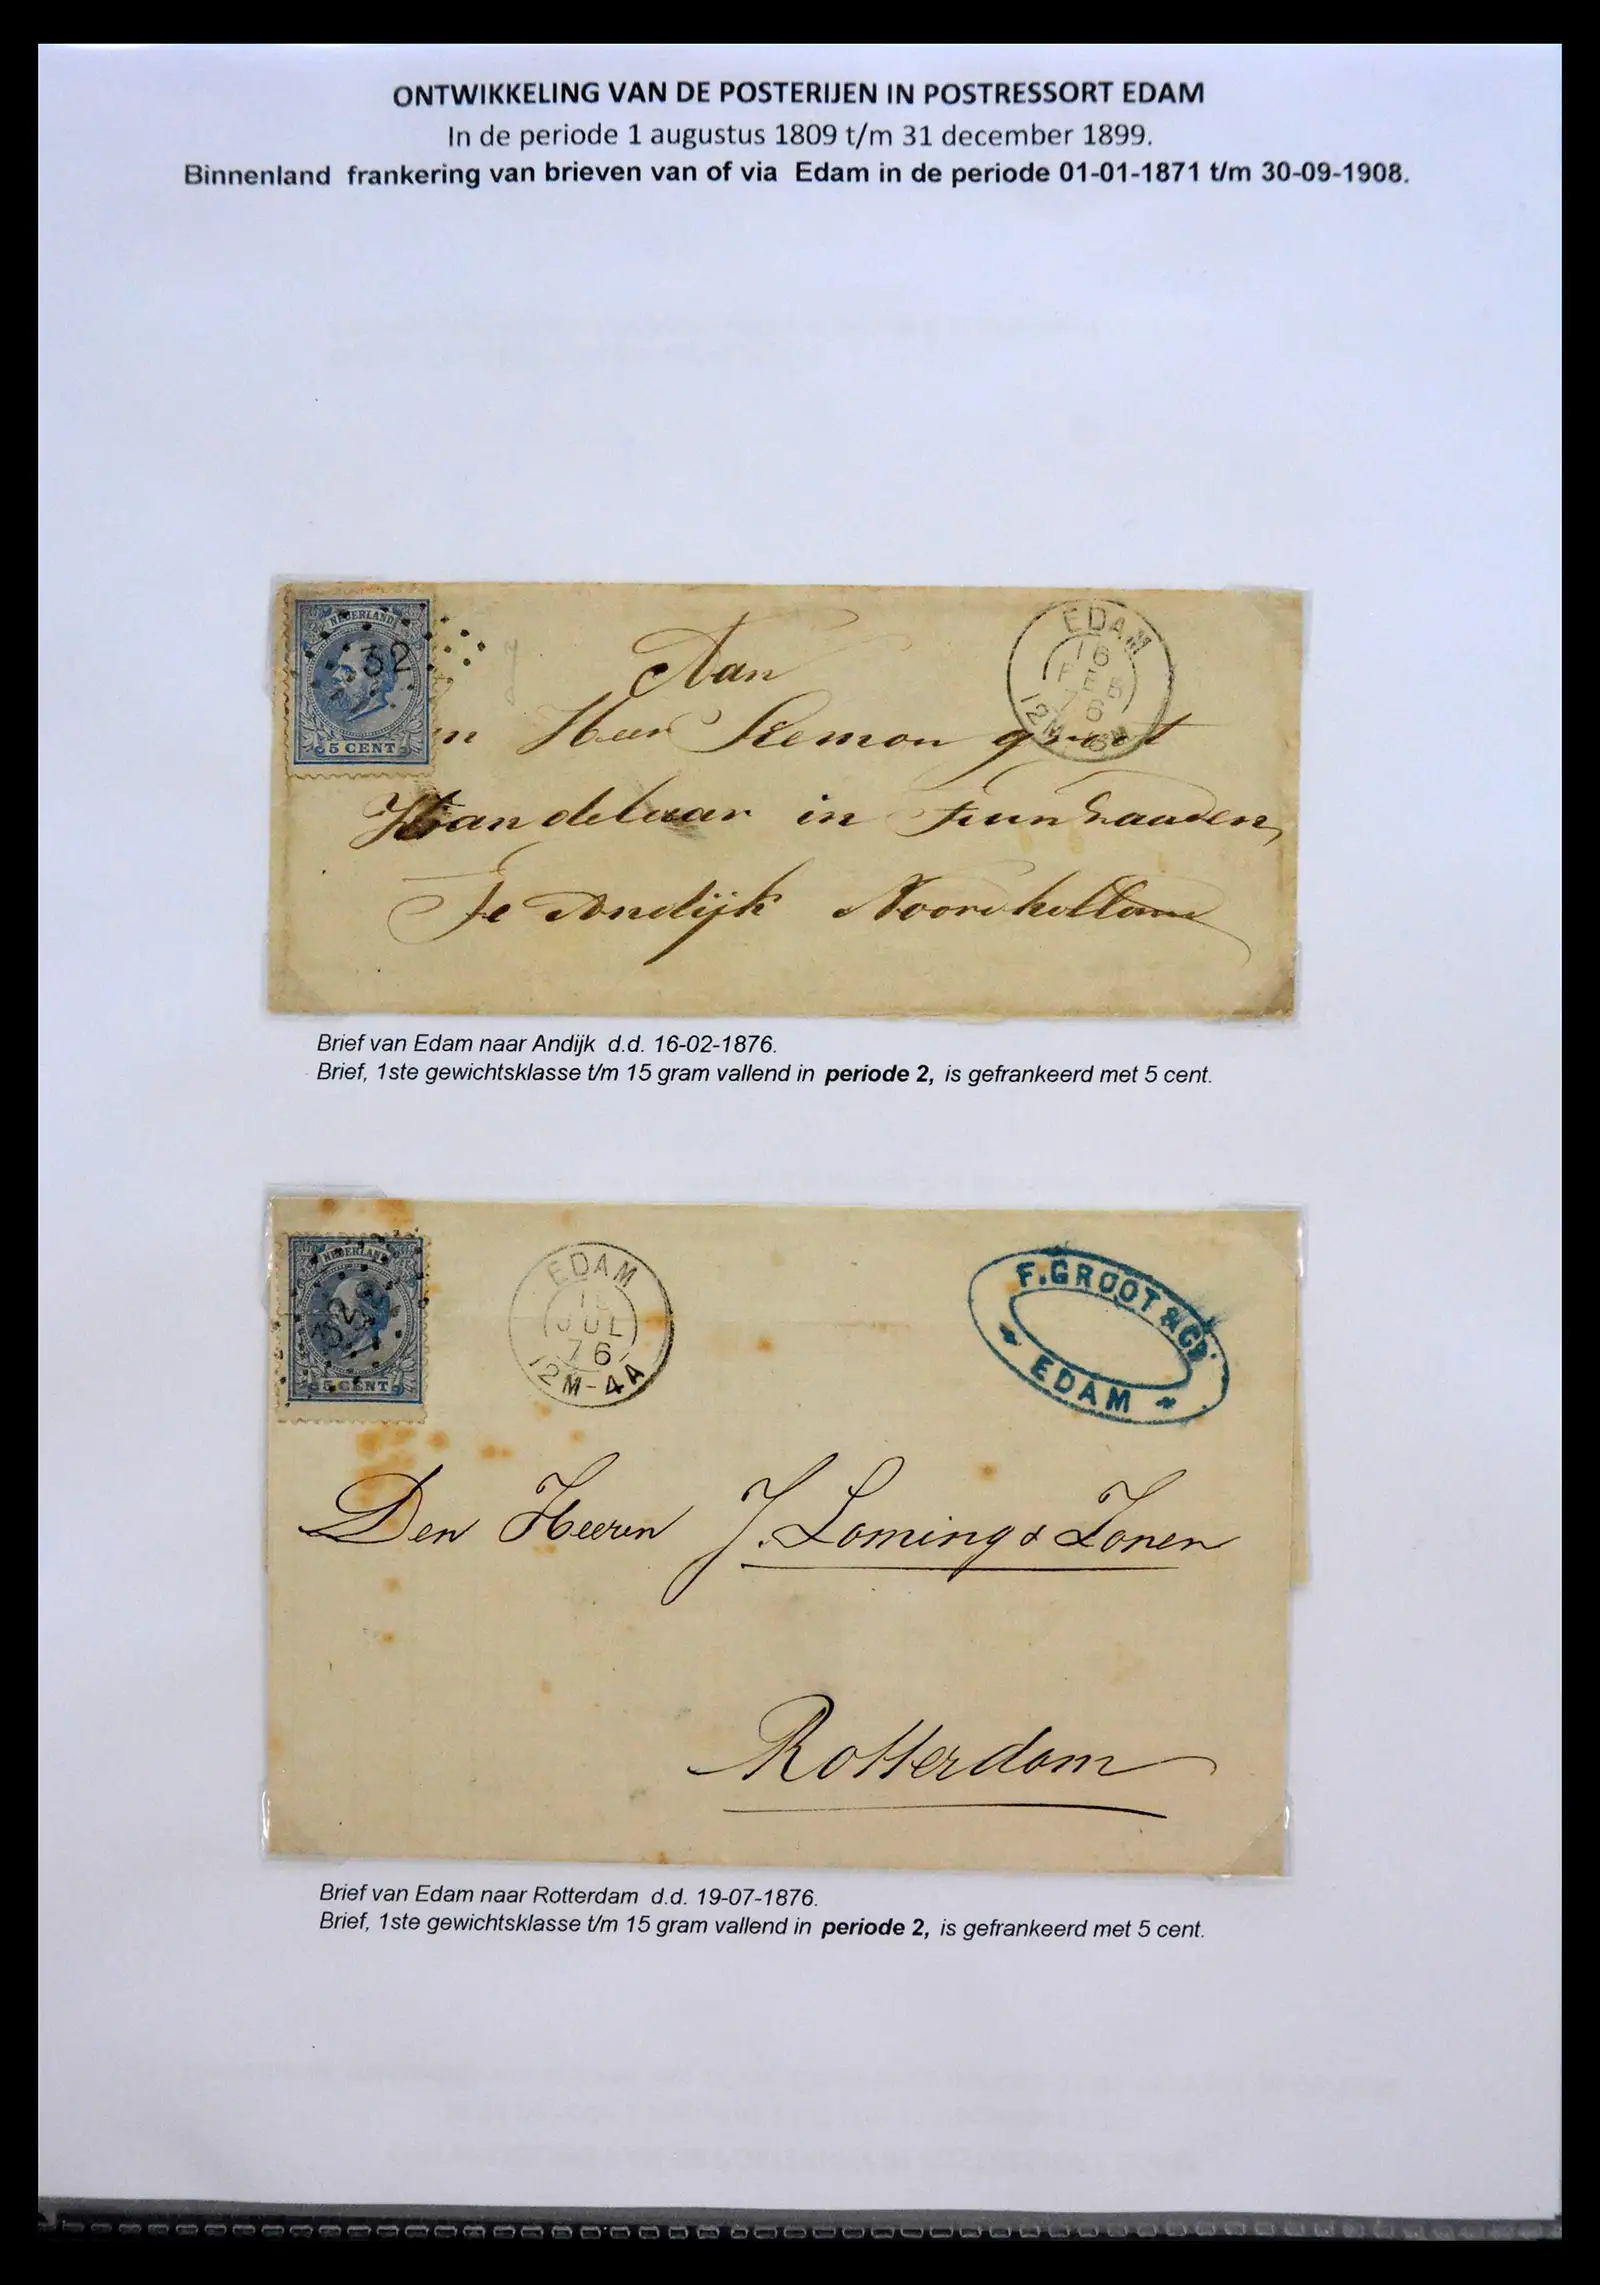 ONTWIKKELING VAN DE POSTERIJEN IN POSTRESSORT EDAM
In de periode 1 augustus 1809 t/m 31 december 1899.
Binnenland frankering van brieven van of via Edam in de periode 01-01-1871 t/m 30-09-1908.
NEDERLAND
32
5 CENT
EDAM
16
FEB
76
12M
Aan
n Heer Klemon groot
Handelaar in Tuin Zaaden,
Te Andijk Noordholland
Brief van Edam naar Andijk d.d. 16-02-1876.
Brief, 1ste gewichtsklasse t/m 15 gram vallend in periode 2, is gefrankeerd met 5 cent.
NEDERLAND
32
5 CENT
EDAM
JUL
76
12M-4A
F. GROOT & Co.
EDAM
Den Heeren J. Loming & Zonen
Rotterdam
Brief van Edam naar Rotterdam d.d. 19-07-1876.
Brief, 1ste gewichtsklasse t/m 15 gram vallend in periode 2, is gefrankeerd met 5 cent.